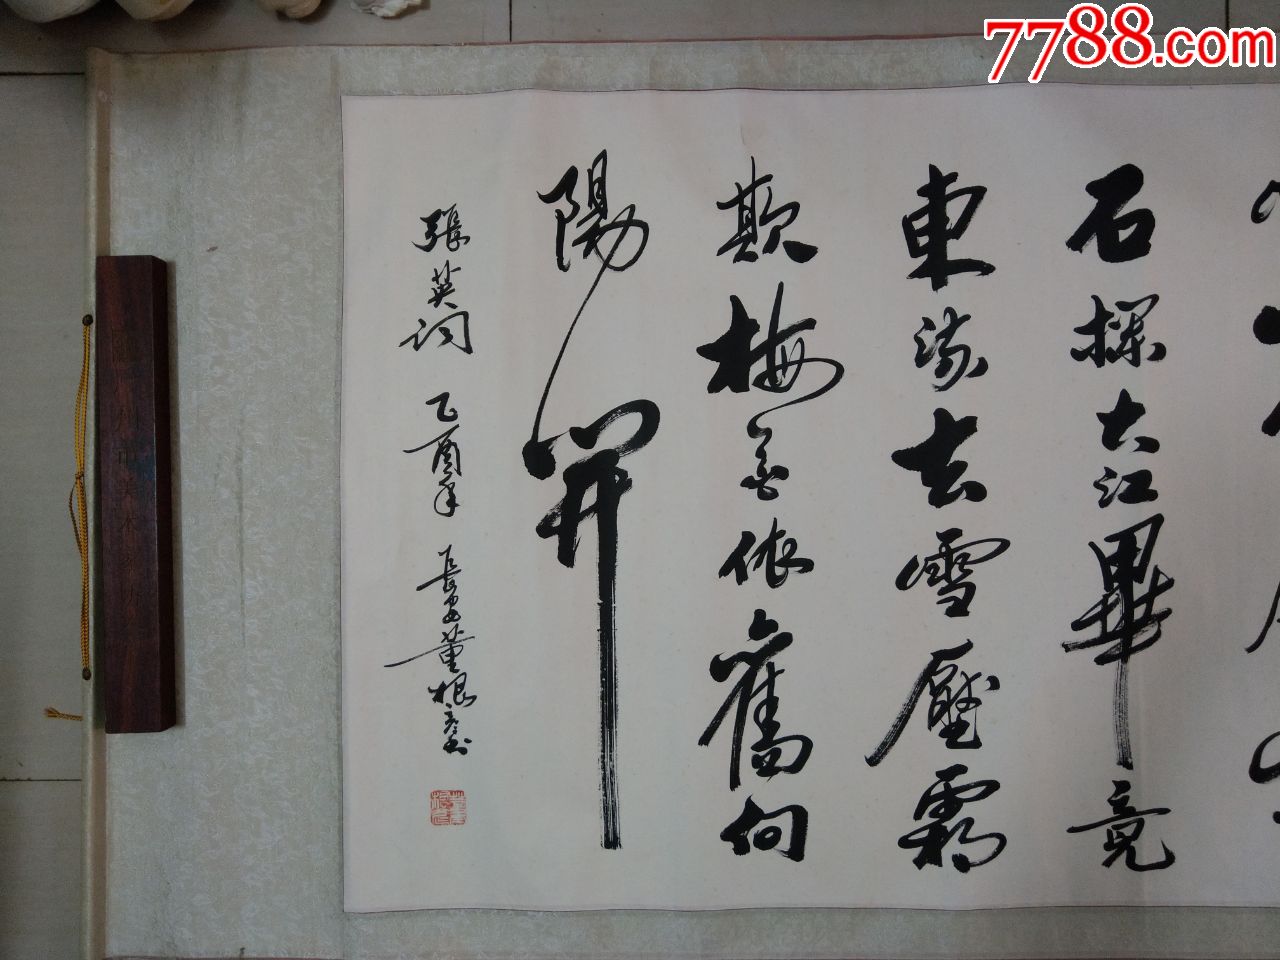 7788.com
石探大江畢竟
東流去雪壓霜
欺梅依舊向
陽開
張英詞 乙酉年 長安董根書
市美术